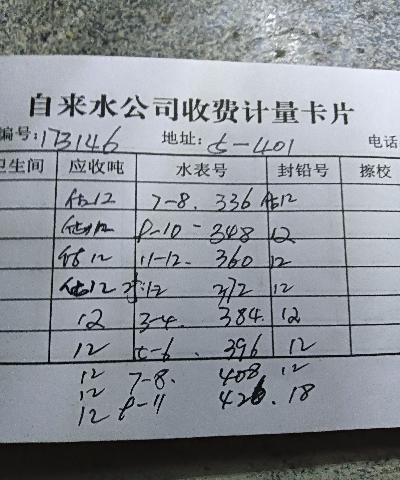 自来水公司收费计量卡片
编号:173146 地址: 5-401 电话
卫生间 应收吨 水表号 封铅号 擦校
估12 7-8. 336 估12
估12 9-10 348 12
估12 11-12. 360 12
估12 1-2 372 12
12 3-4. 384. 12
12 5-6. 396 12
12 7-8. 408. 12
12
12 9-11 426. 18